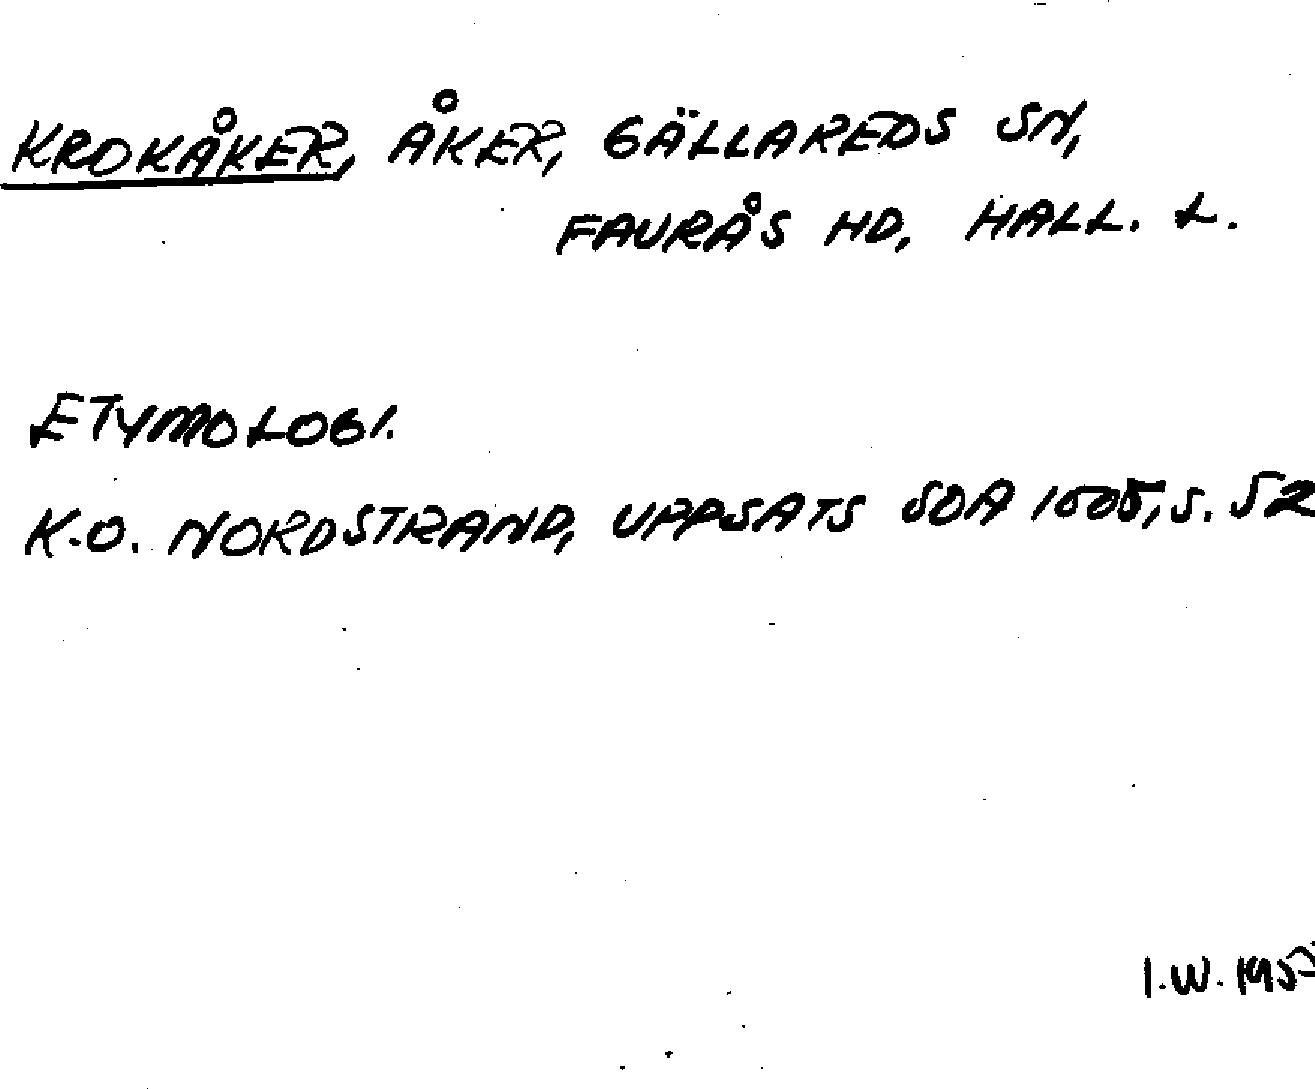 KROKÅKER, ÅKER, GÄLLAREDS SN,
FAURÅS HD, HALL. L.
ETYMOLOGI.
K.O. NORDSTRAND, UPPSATS SOA 1505, S. 52
I.W.